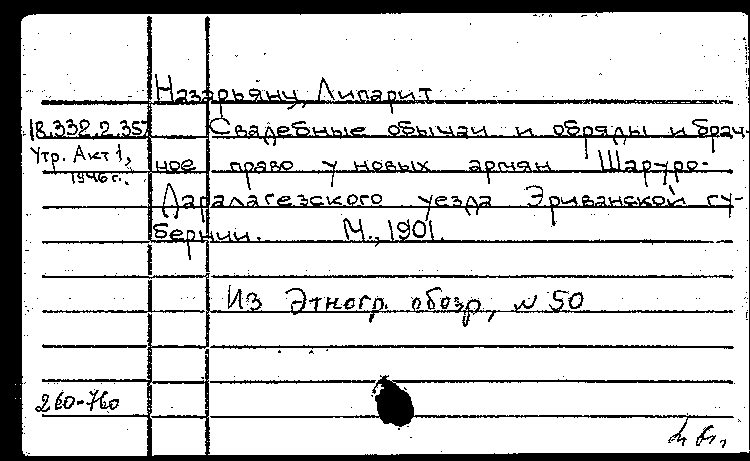 Назарьянц, Липарит
18.332.2.357
Свадебные обычаи и обряды и брач-
Утр. Акт 1,
1946 г.
ное право у новых армян Шаруро-
Даралагезского уезда Эриванской гу-
бернии. М., 1901.
Из Этногр. обозр, № 50
260-760